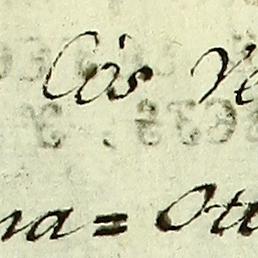 Cós Ve
na = Ott